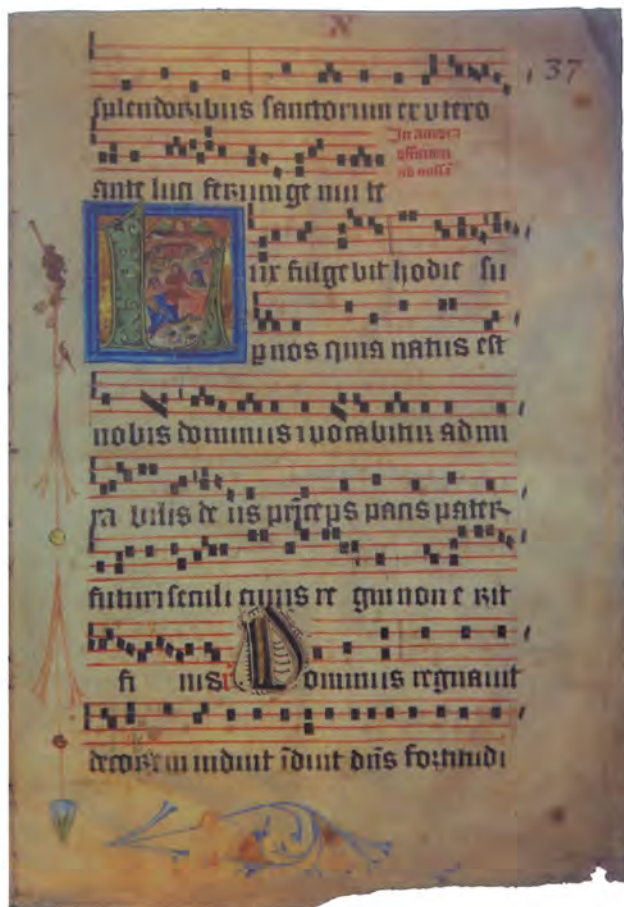 N
37
splendoribus sanctorum ex utero
In aurora
officium
ante luci ferum ge nui te
Lux fulge bit hodie su
p nos quia natus est
nobis dominus i vocabitur ad mi
ra bilis de us princeps pacis pater
futuri seculi cuius re gni non e rit
fi nis Dominus regnavit
decorem indut idut dns fortitudi